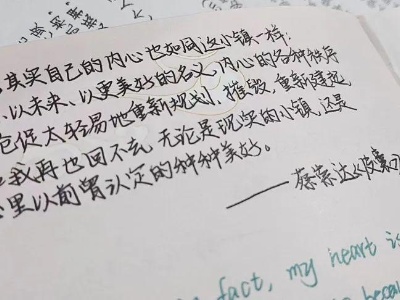 其实自己的内心也如同这小镇一样:
以未来、以更美好的名义,内心的各种秩序
仓促太轻易地重新规划、摧毁,重新建起
我再也回不去,无论是现实的小镇,还是
里以前曾认定的种种美好。
——蔡崇达《皮囊》
fact, my heart is